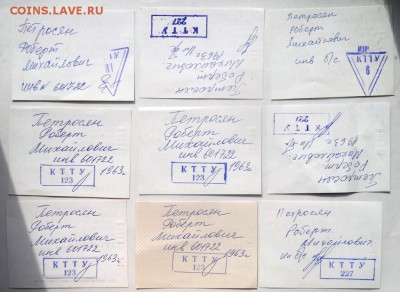 COINS.LAVE.RU
Петросян
Роберт
Михайлович
инв № 601722
КТТУ
227
Петросян
Роберт
Михайлович
1963г
Петросян
Роберт
Михайлович
инв б/с
КТТУ
6
Петросян
Роберт
Михайлович
инв 601722
1963г
КТТУ
123
Петросян
Роберт
Михайлович
инв 601722
1963г
КТТУ
123
КТТУ
Петросян
Роберт
Михайлович
1963г
Петросян
Роберт
Михайлович
инв 601722
1963г
КТТУ
123
Петросян
Роберт
Михайлович
инв 601722
1963г
КТТУ
123
Петросян
Роберт
Михайлович
КТТУ
227